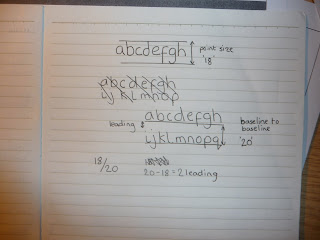 abcdefgh
point size
'18'
abcdefgh
ij klmnop
abcdefgh
leading
baseline to
baseline
ijklmnopq
'20'
18/20
20-18=2 leading